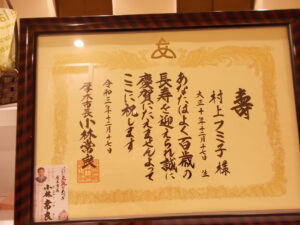 寿
村上フミ子 様
大正十年十二月十七日 生
あなたはよく百歳の
長寿を迎えられ誠に
慶賀にたえませんよって
ここに祝します
令和三年十二月十七日
厚木市長 小林常良
小林常良